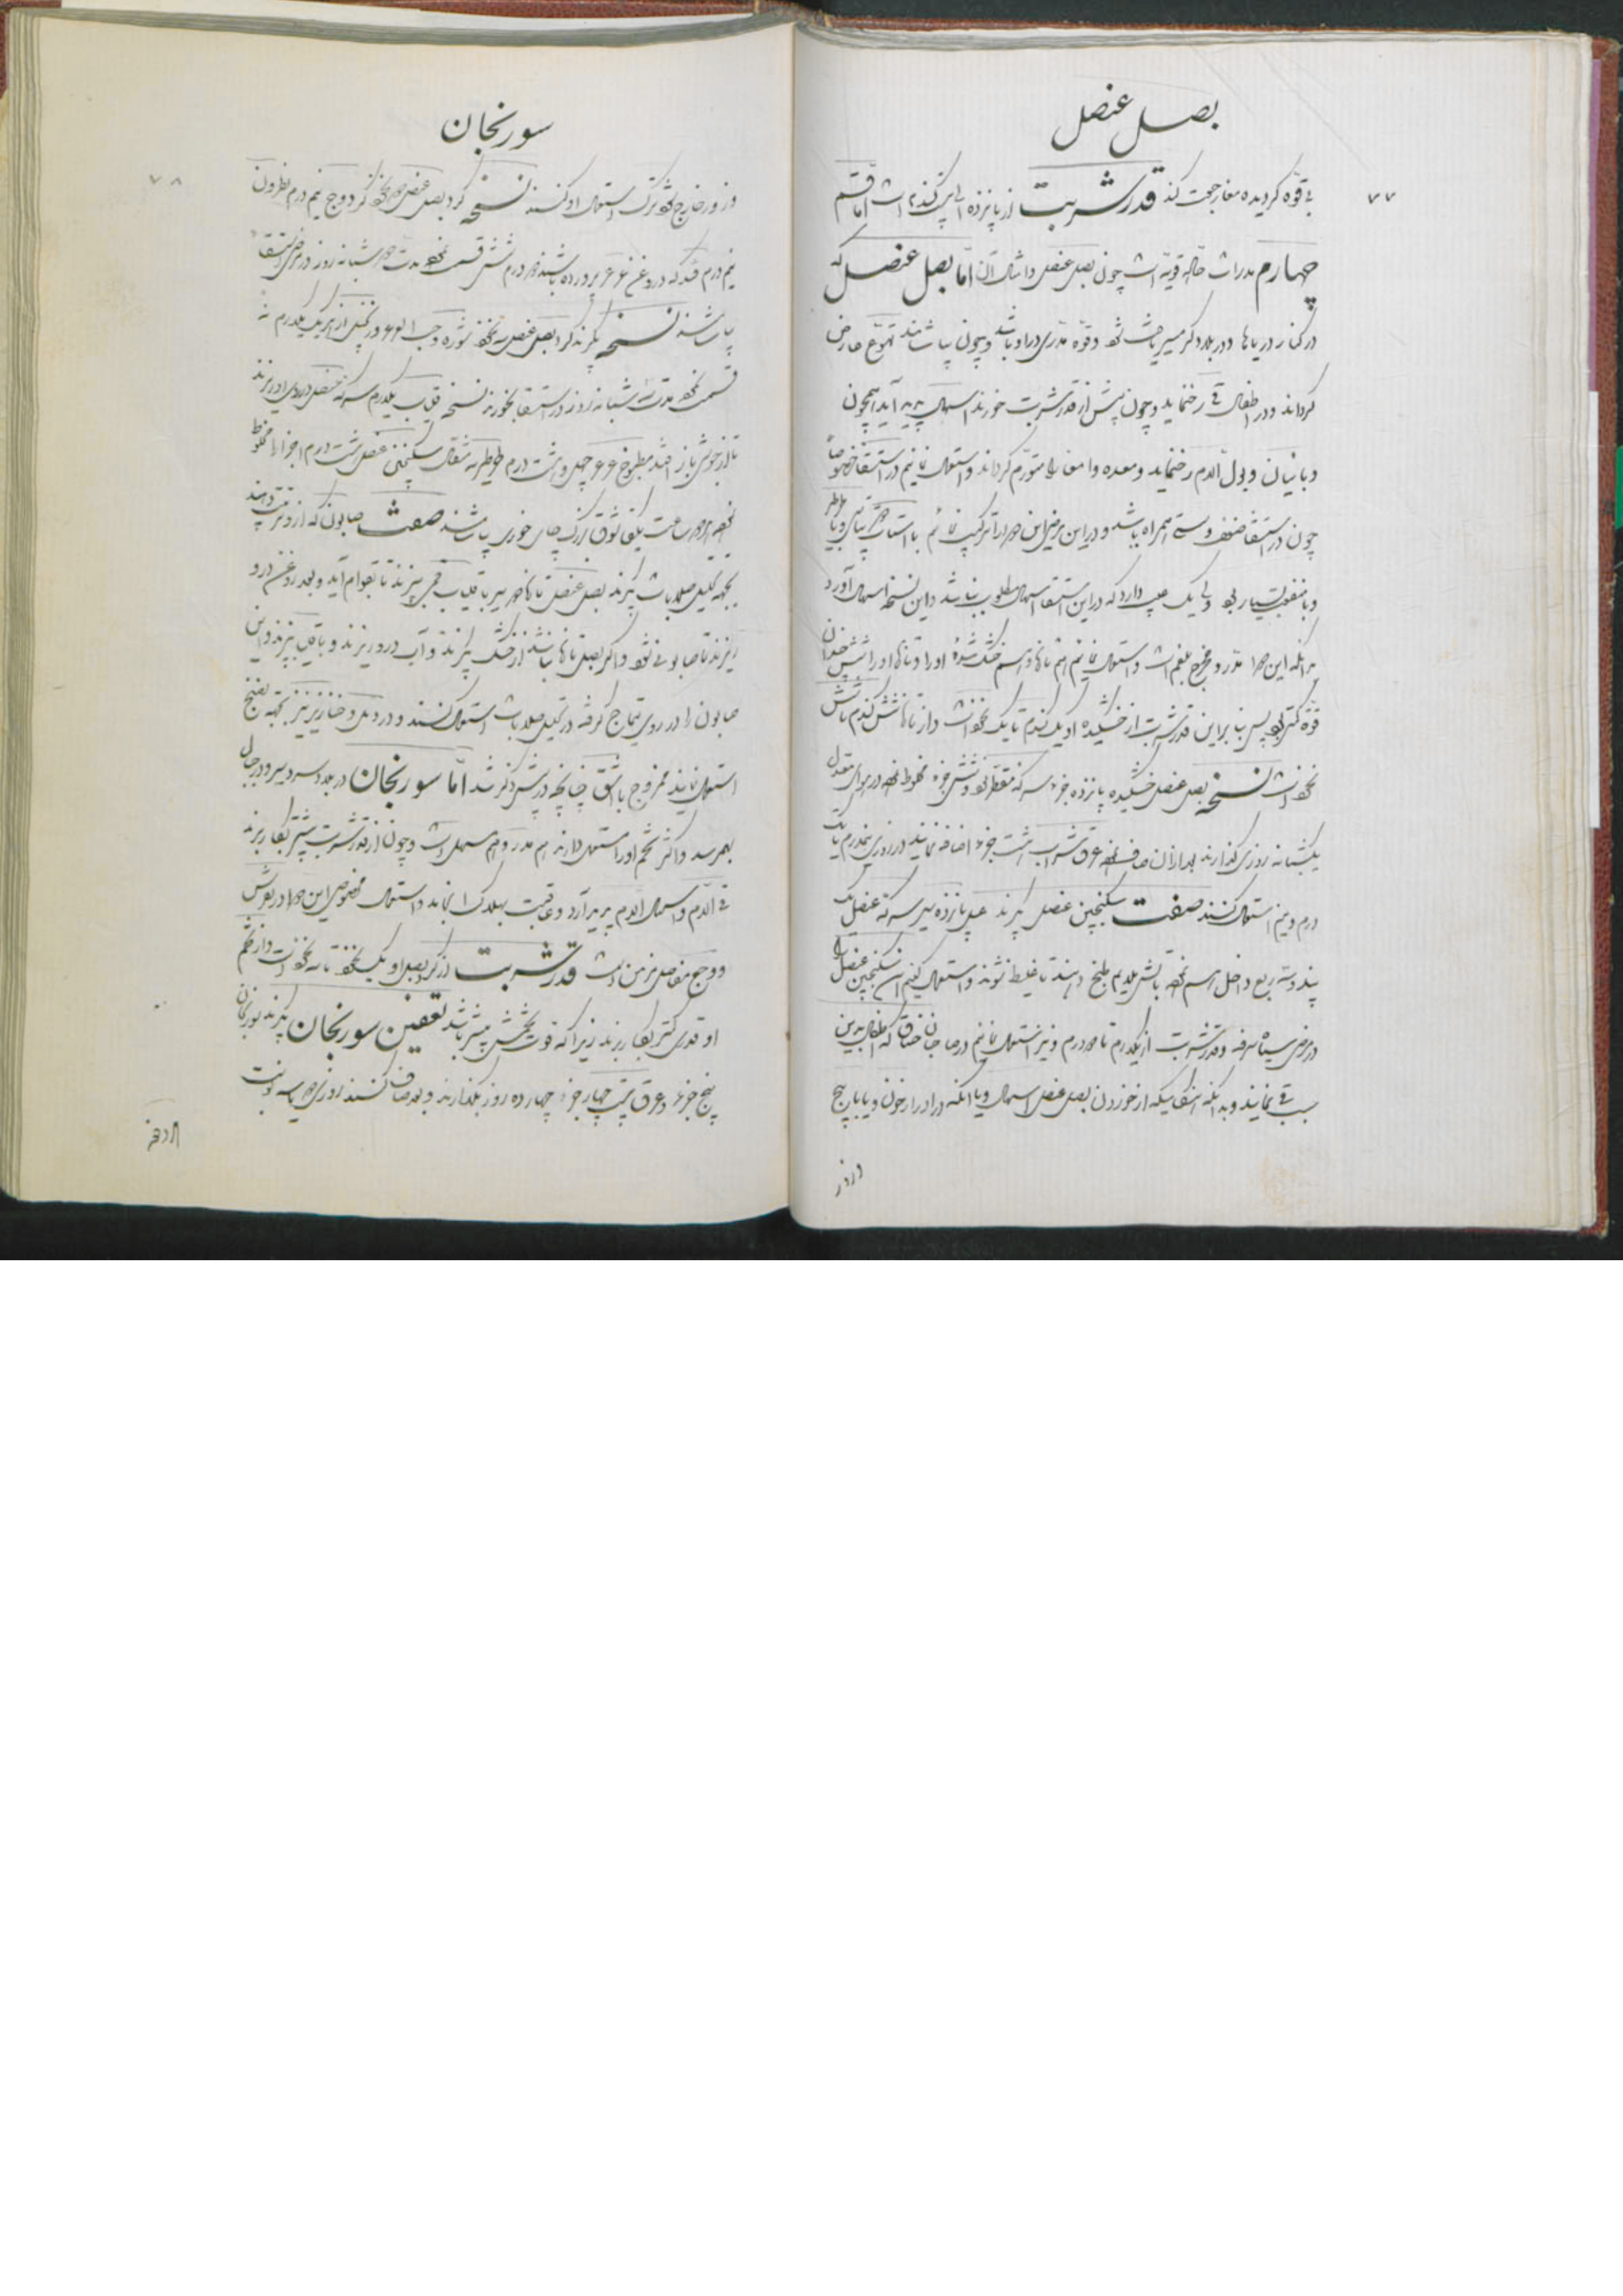 بصل عنصل
۷۷
بی قوّه کردیده معاجت کند قدر شربت از پانزده الی کندم است اما قسم
چهارم مدرات حالّه قویّه است چون بصل عنصل و امثال آن اما بصل عنصل که
در کنار دریاها و در بلاد کرمسیر یافت شود و قوّه مدرّی در او باشد و چون بیاشامند تهوّع عارض
کرداند و در اطفال قی رخنماید و چون بیش از قدر شربت خورند اسهال پدید آید همچون
وبائیان و بول الدم رخنماید و معده و امعا را متورّم کرداند و استعمال نمائیم در استسقا خصوصاً
چون در استسقا ضعف و سستی همراه باشد و در این مرض این دوا را ترکیب نمائیم با
و با منفعت بسیار بود ولی یک عیب دارد که در این استسقا اسهال مطلوب نباشد و این نسخه اسهال آورد
بدانکه این دوا مدّر و مخرج بلغم است و استعمال نمائیم هم تازه و هم خشک شدۀ او را و تازۀ او را شش چندان
قوّه کمتر بود پس بنابراین قدر شربت از خشکیده او یک کندم تا یک نخود است و از تازه شش کندم تا شش
نخود است نسخه بصل عنصل خشکیده پانزده جزء سرکه مقطّر نود و شش جزء مخلوط نموده در هوای معتدل
یکشبانه روز بکذارند بعد از آن صاف نموده عرق شراب هشت جزء اضافه نمایند در روزی نیمدرم تا یک
درم و نیم استعمال کنند صفت سکنجبین عنصلی بکیرند عسل پانزده سیر سرکه عنصل یک
پند و سه ربع داخل هم نموده بآتش ملایم طبخ دهند تا غلیظ شود و استعمال کنیم این سکنجبین عنصل را
در مرض سیاه سرفه و قدر شربت از یکدرم تا دو درم و نیز استعمال نمائیم در صاحبان خناق که اطفال بدین
سبب قی نمایند و بدانکه اتفاقیکه از خوردن بصل عنصل اسهال و یا آنکه در ادرار خون و یا پیچ
و زور
سورنجان
۷۸
و زور خارج شود ترک استعمال او کنند نسخه کرد بصل عنصل دو نخود کرد وج نیم درم نطرون
نیم درم قند که در روغن عرعر پرورده باشند دو درم شش قسمت نموده مدت دو شبانه روز در مرض استسقا
بیاشند نسخه بکیرند کرد بصل عنصل سه نخود شوره و حب العرعر و زنجبیل از هر یک یکدرم نه
قسمت نموده مدت سه شبانه روز در استسقا بخورند نسخه قلیاب یکدرم سرکه عنصل در روی او ریزند
تا از جوش باز افتد مطبوخ عرعر چهل و هشت درم طرطیر سه مثقال سکنجبین عنصل هشت درم اجزا را مخلوط
نموده هر دو ساعت یک قاشق بزرک چای خوری بیاشند صفت صابون که از او ترتیب دهند
بجهه تحلیل صلابات بکیرند بصل عنصل تازه دو سیر با قلیاب قمی بپزند تا بقوام آید و بعد روغن در او
ریزند تا صابونی شود و اکر بصل تازه نباشد از خشک بکیرند و آب در او ریزند و با قلیاب بپزند و این
صابون را در روی تیماج کرفته در تحلیل صلابات استعمال کنند و در دمل و خنازیر نیز بجهه نضج
استعمال نمایند ممزوج با اشق چنانچه در پیش ذکر شد اما سورنجان در بلاد سردسیر و در جبال
بهمرسد و اکثر تخم او را استعمال دارند هم مدر و هم مسهل است و چون از قدر شربت بیشتر بکار برند
قی الدّم و اسهال الدم پدید آرد و عاقبت بهلاکت انجامد و استعمال مخصوص این دوا در نقرس
و وجع مفاصل مزمن است قدر شربت از کرد بصل او یک نخود تا سه نخود است و از تخم
او قدری کمتر بکار برند زیرا که قوت تخمش بیشتر باشد تعفین سورنجان بکیرند سورنجان
پنج جزء و عرق تیّب چهار جزء چهارده روز بکذارند و بعد صاف کنند روزی دو یا سه نوبت